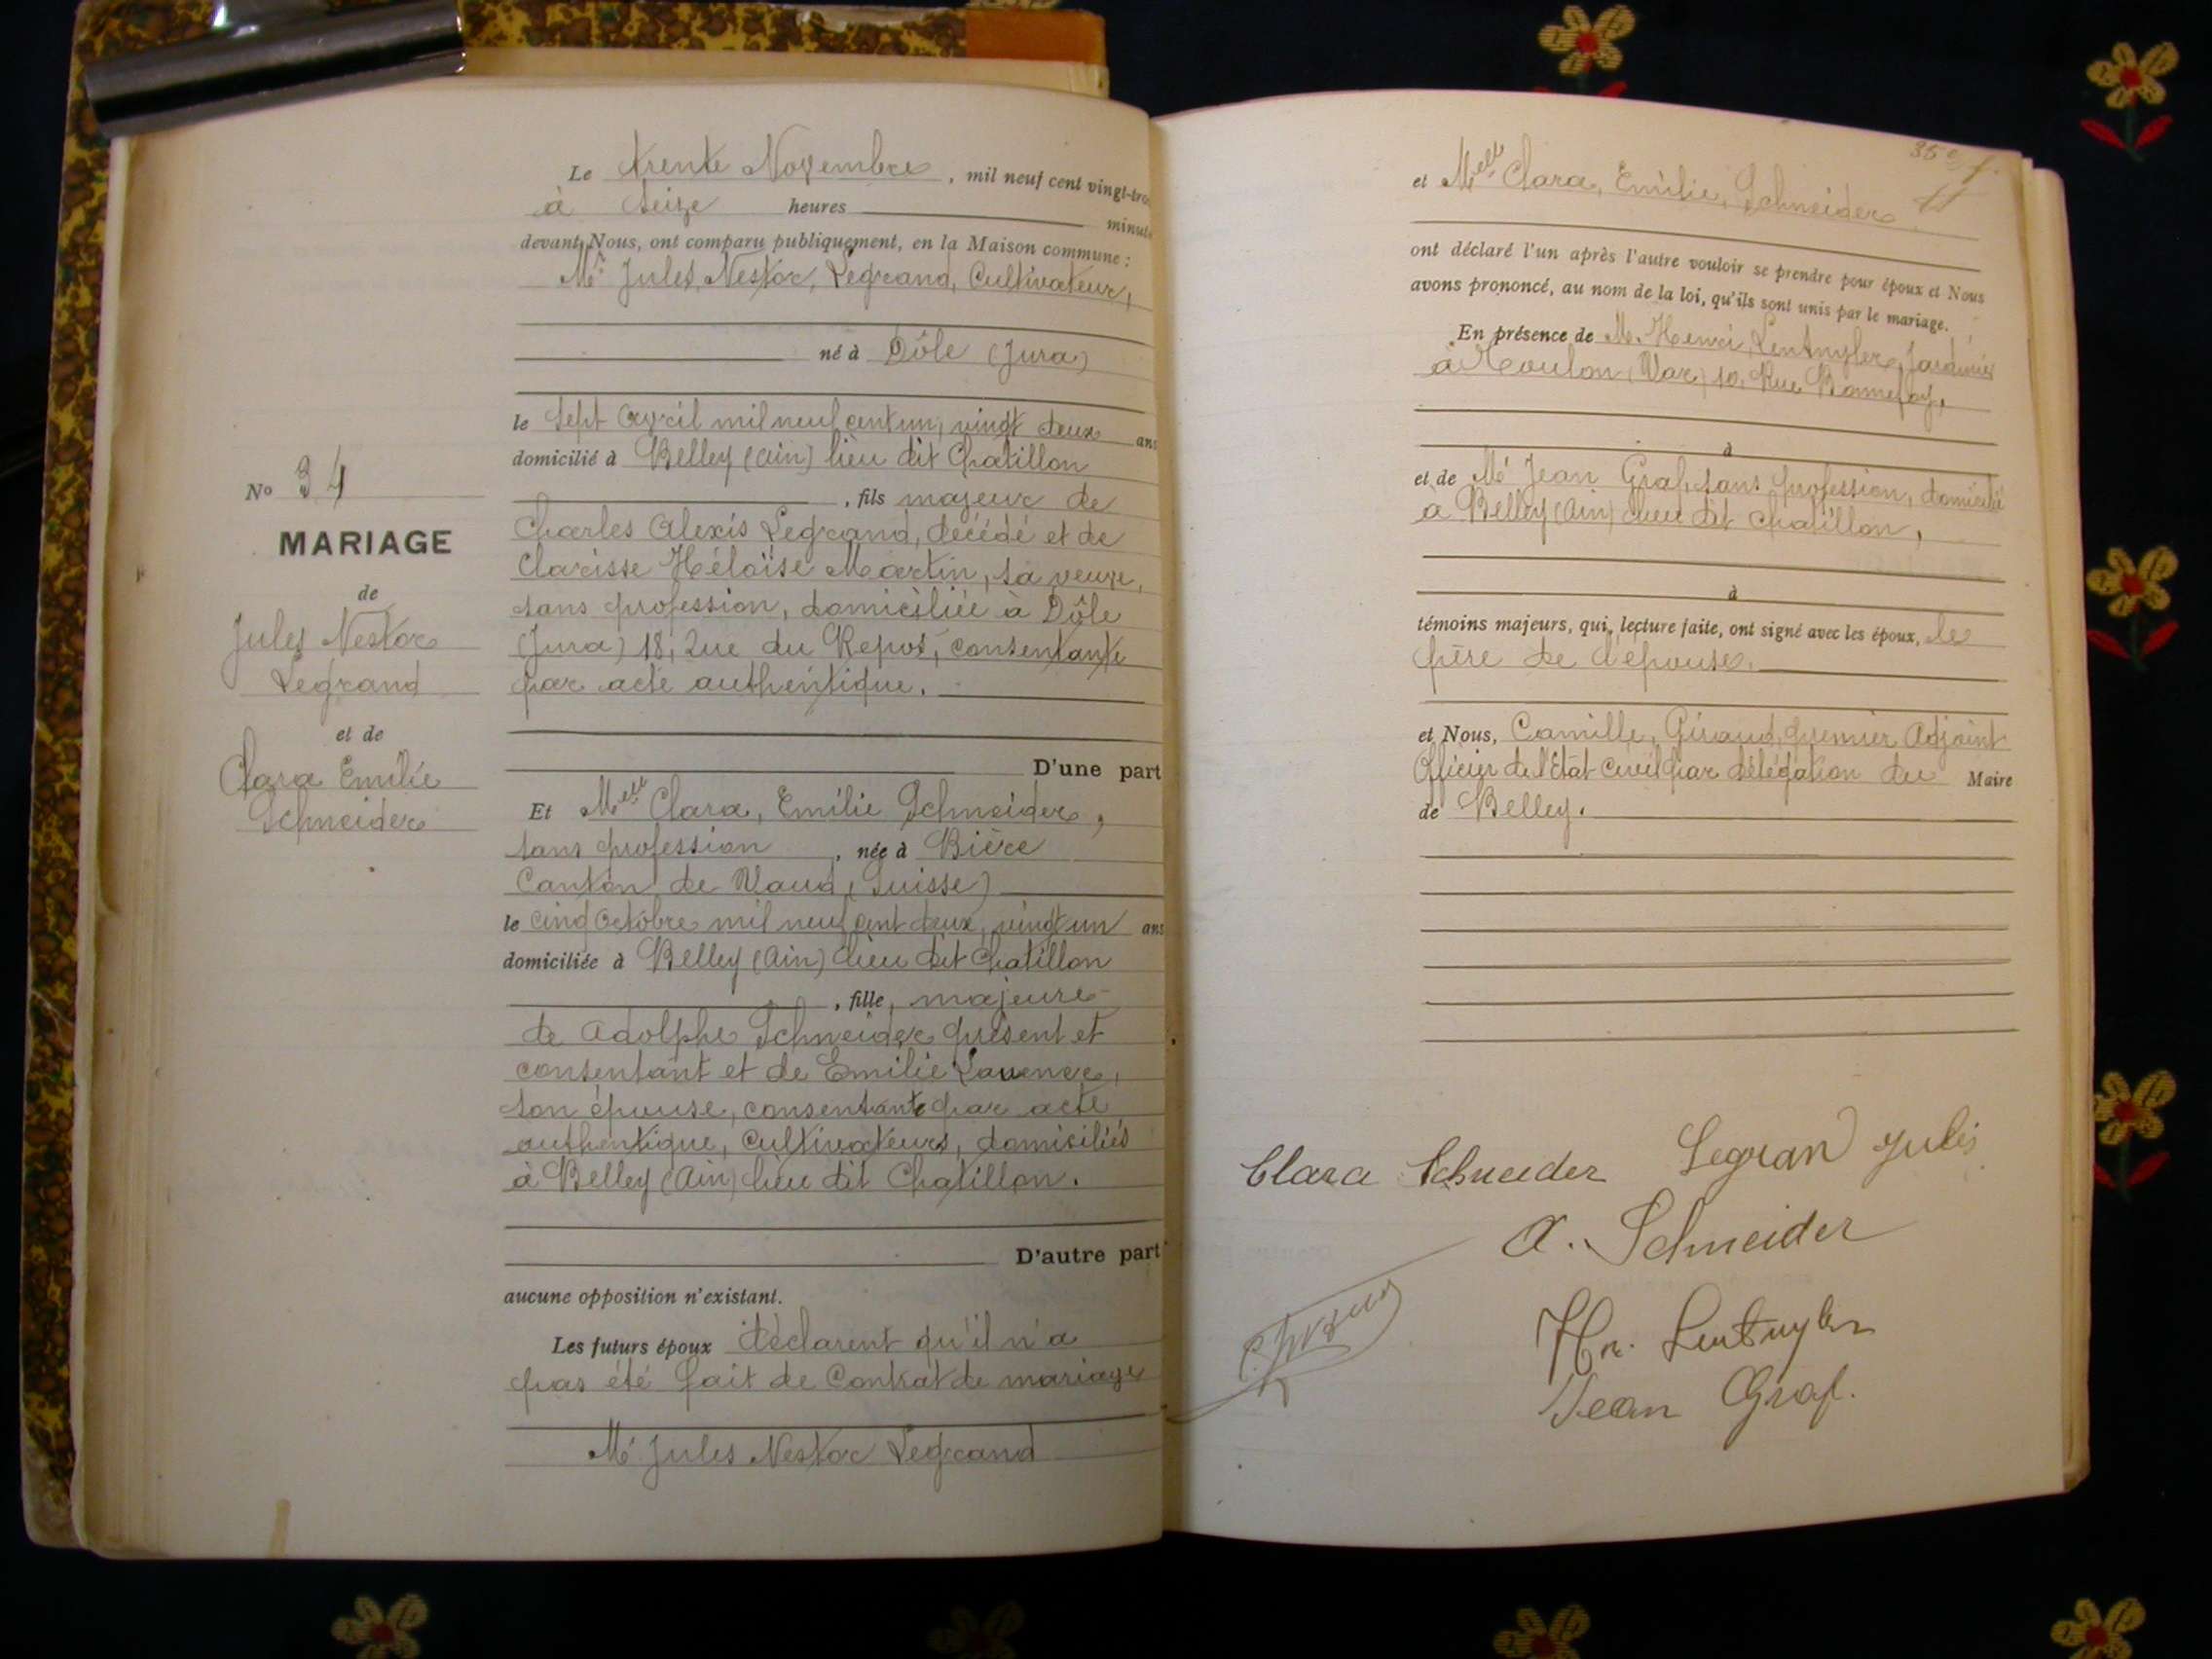 Le trente Novembre, mil neuf cent vingt-tro
à seize heures minute
devant Nous, ont comparu publiquement, en la Maison commune :
Mr Jules, Nestor, Legrand, Cultivateur,
né à Dôle (Jura)
le sept avril mil neuf cent un, vingt deux ans
domicilié à Belley (Ain) lieu dit Chatillon
, fils majeur de
Charles Alexis Legrand, décédé et de
Clarisse Héloïse Martin, sa veuve,
sans profession, domiciliée à Dôle
(Jura) 18, Rue du Repos, consentante
par acte authentique.
D'une part
Et Melle Clara, Emilie Schneider,
sans profession, née à Bière
Canton de Vaud, (Suisse)
le cinq Octobre mil neuf cent deux, vingt un ans
domiciliée à Belley (Ain) lieu dit Chatillon
, fille, majeure
de Adolphe Schneider présent et
consentant et de Emilie Laurence,
son épouse, consentante par acte
authentique, Cultivateurs, domiciliés
à Belley (Ain) lieu dit Chatillon.
D'autre part
aucune opposition n'existant.
Les futurs époux déclarent qu'il n'a
pas été fait de Contrat de mariage
Mr Jules Nestor Legrand
No 34
MARIAGE
de
Jules Nestor
Legrand
et de
Clara Emilie
Schneider
35e f.
et Melle Clara, Emilie, Schneider
ont déclaré l'un après l'autre vouloir se prendre pour époux et Nous
avons prononcé, au nom de la loi, qu'ils sont unis par le mariage.
En présence de M. Henri, Jardinier
à Toulon (Var) 10, Rue Bonnefoy,
à
et de Mr Jean Graf, sans profession, domicilié
à Belley (Ain) lieu dit Chatillon,
à
témoins majeurs, qui, lecture faite, ont signé avec les époux, le
père de l'épouse.
et Nous, Camille, Giraud, premier Adjoint
Officier de l'état Civil par délégation du Maire
de Belley.
Clara Schneider Legrand Jules
A. Schneider
Hri.
Jean Graf.